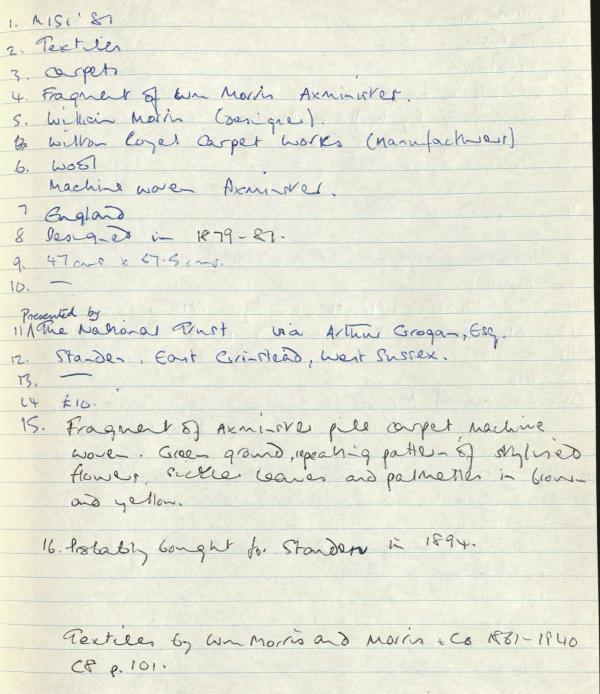 1. M151'81
2. Textiles
3. Carpets
4. Fragment of Wm Morris Axminster.
5. William Morris (Designer).
Wilton Royal Carpet Works (Manufacturers)
6. Wool
Machine woven Axminster.
7 England
8 Designed in 1879-81.
9. 47 cms x 67.5 cms.
10. —
Presented by
11 ∧ The National Trust via Arthur Grogan, Esq.
12. Standen, East Grinstead, West Sussex.
13. —
14 £10.
15. Fragment of Axminster pile carpet, machine
woven. Green ground, repeating pattern of stylised
flowers, sickle leaves and palmettes in brown
and yellow.
16. Probably bought for Standen in 1894.
Textiles by Wm Morris and Morris & Co 1861-1940
C8 p. 101.